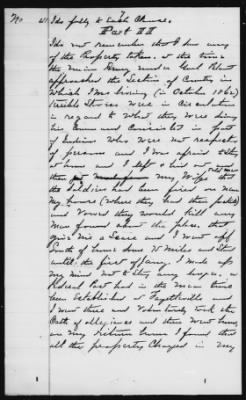 No
Part II
I do not remember that I saw any
of the Property taken. at the time
the Union Army under Genl Blunt
approached the Section of Country in
Which I was living (in October 1862)
terrible Stories were in Circulation
in regard to What they were doing
his Command Consisted in part
of Indians Who were not respecters
of persons and I was afraid to stay
at home and I left & hid out and
then my Wife told me that
the Soldiers had been fired on near
my house (where they had then
and Vowed they would Kill every
Man found about the place. this
give me a Scare and I went off
South of home about Miles and Staid
until the first of Jany. I made up
my mind not to Stay away longer. a
Federal Post had in the mean time
been established at Fayetteville and
I went there and Voluntarily took the
Oath of allegiance and then went home
on my return home I found that
all the property Charged in my